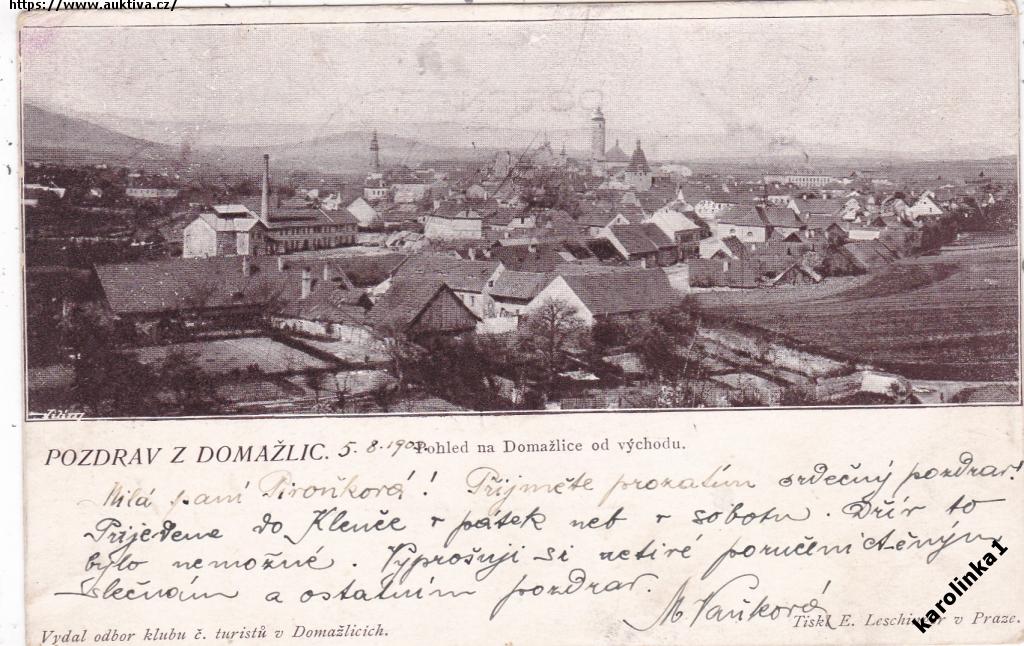 https://www.auktiva.cz/
POZDRAV Z DOMAŽLIC. 5. 8. 190 Pohled na Domažlice od východu.
Milá paní Piroňková! Přijměte prozatím srdečný pozdrav!
Přijedeme do Klenče v pátek neb v sobotu. Dřív to
bylo nemožné. Vyprošuji si uctivé poručení ctěným
slečnám a ostatním pozdrav. M. Vaňková
Vydal odbor klubu č. turistů v Domažlicích.
Tiskl E. Leschinger v Praze.
karolinka1